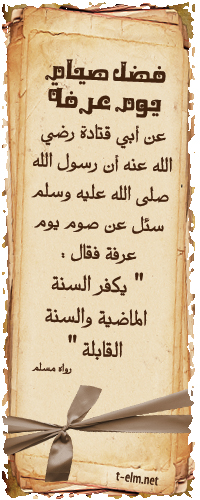 فضل صيام
يوم عرفة
عن أبي قتادة رضي
الله عنه أن رسول الله
صلى الله عليه وسلم
سئل عن صوم يوم
عرفة فقال :
" يكفر السنة
الماضية والسنة
القابلة "
رواه مسلم
t-elm.net